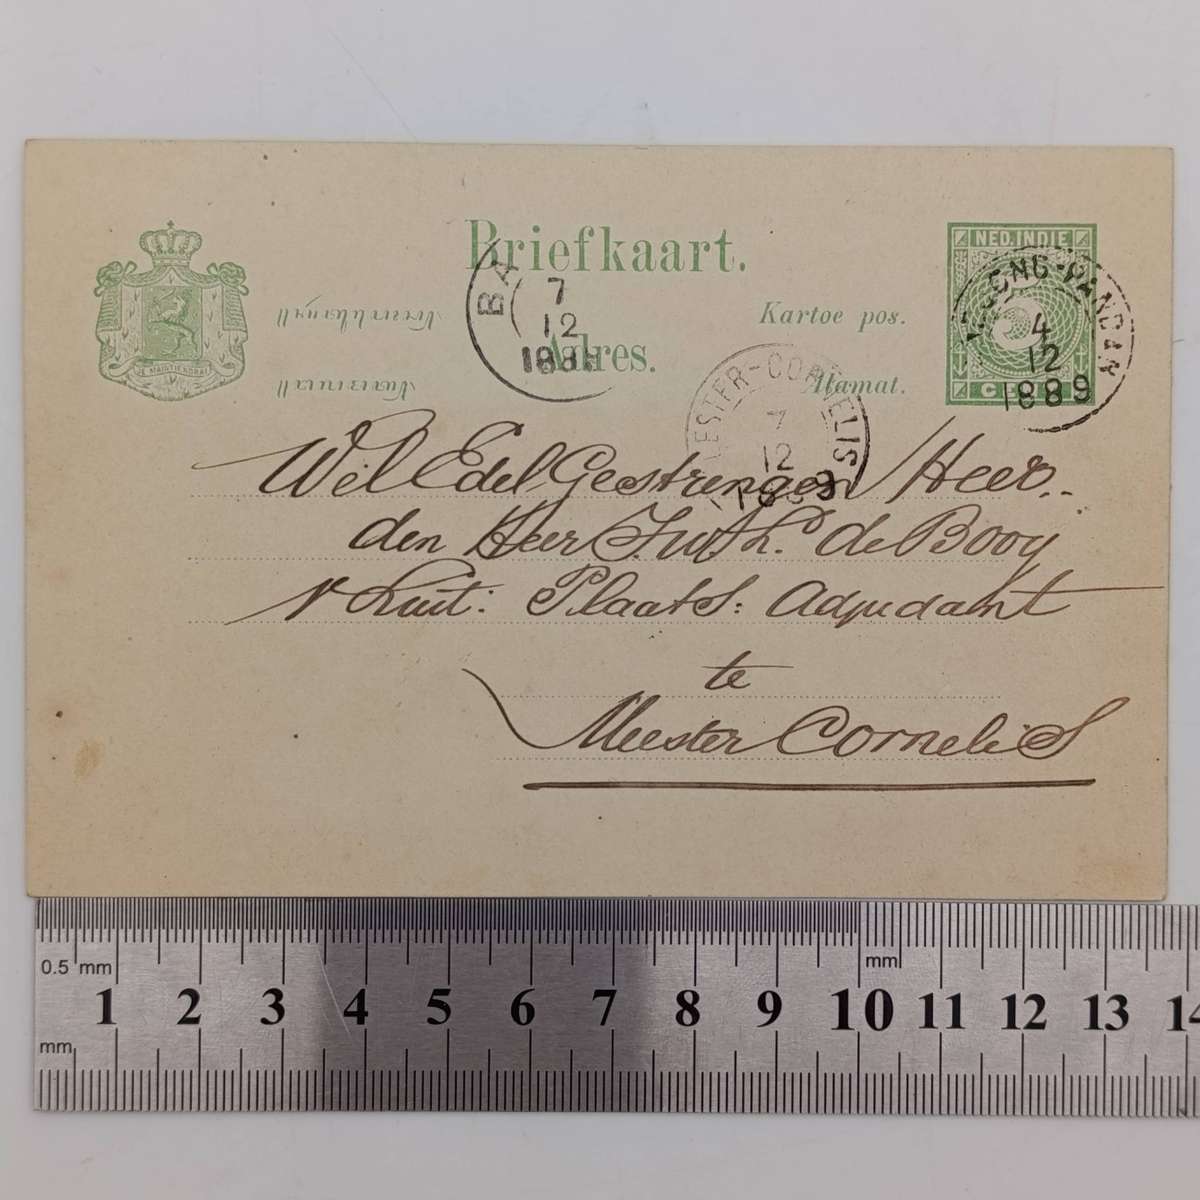 Briefkaart.
NED. INDIE
Kartoe pos.
Adres.
Alamat.
CENT
JE MAINTIENDRAI
BA
7
12
4
12
1889
MEESTER-CORNELIS
7
12
1889
Wel Edel Gestrengen Heer
den Heer de Booy
Luit: Plaats: Adjudant
te
Meester Cornelis
0.5 mm
mm
mm
1 2 3 4 5 6 7 8 9 10 11 12 13 14